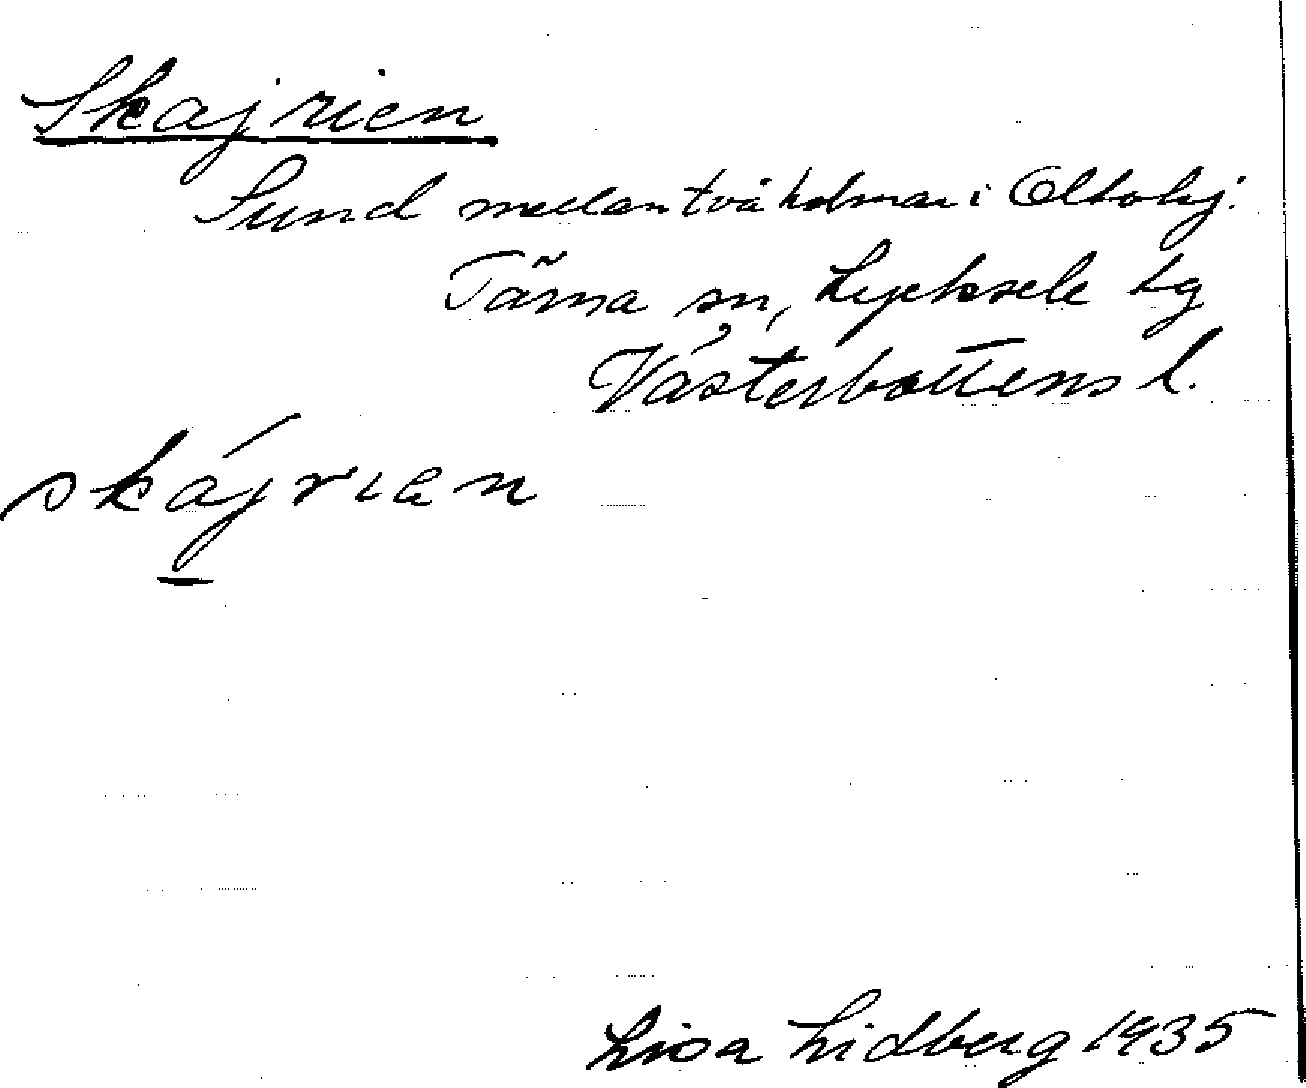 Skajrien
Sund mellan två holmar i
Tärna sn, Lycksele lg
Västerbottens l.
skájrian
Lisa Lidberg 1935